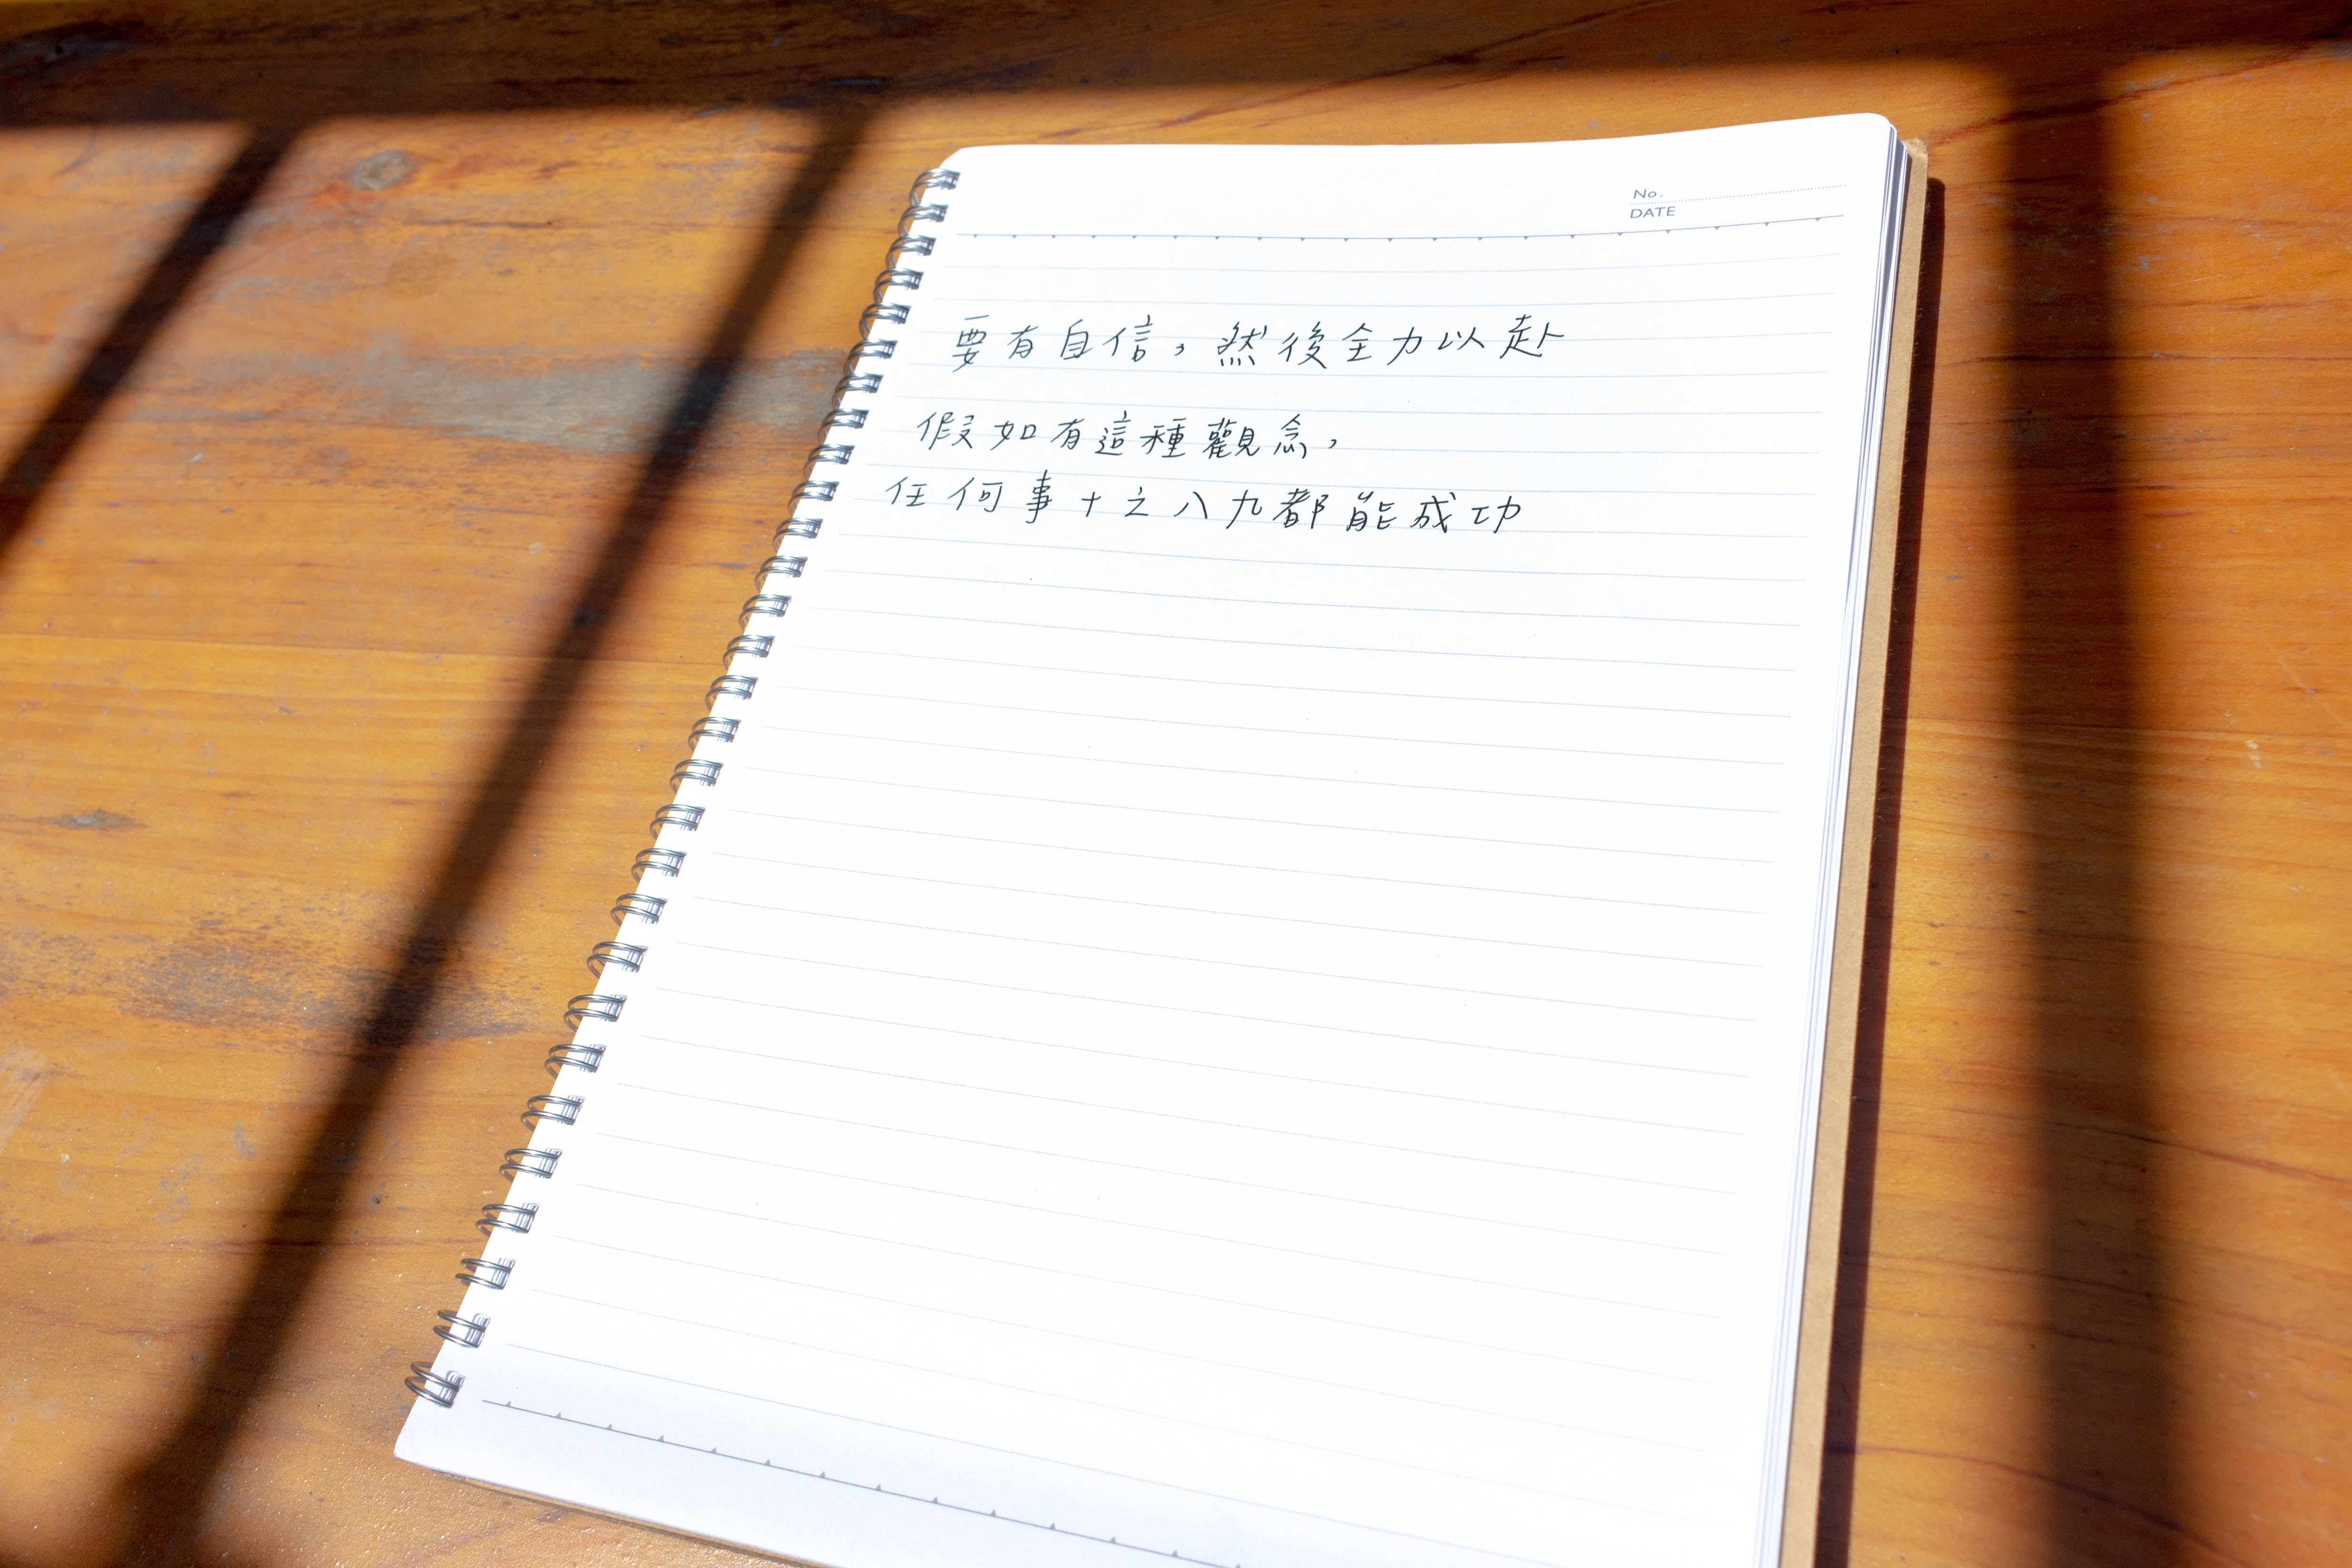 No.
DATE
要有自信，然後全力以赴
假如有這種觀念，
任何事十之八九都能成功